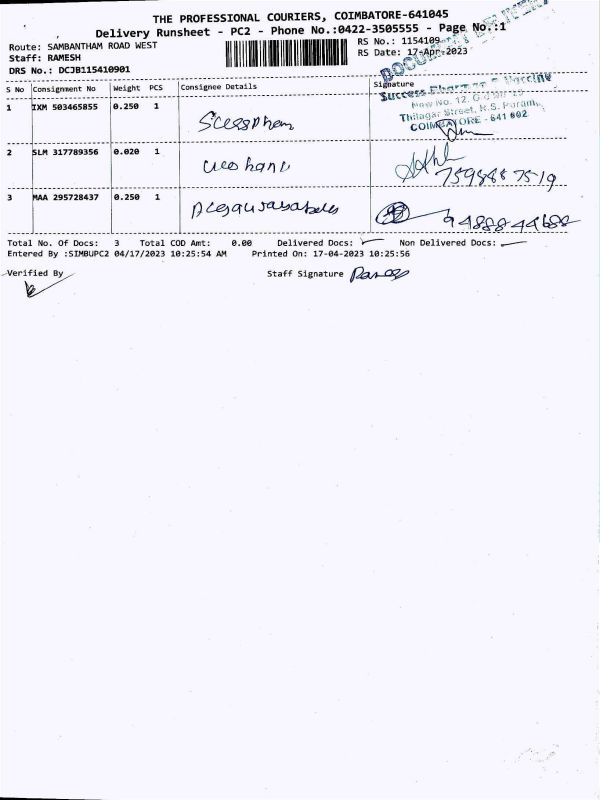 THE PROFESSIONAL COURIERS, COIMBATORE-641045
Delivery Runsheet - PC2 - Phone No.:0422-3505555 - Page No.:1
Route: SAMBANTHAM ROAD WEST
RS No.: 1154109
Staff: RAMESH
RS Date: 17-Apr-2023
DRS No.: DCJB115410901
DOCUMENT DELIVERED
S No Consignment No Weight PCS Consignee Details Signature
Success Pharma & Vaccine
New No. 12,
Thilagar Street, K.S. Puram,
COIMBATORE - 641 602
1 IXM 503465855 0.250 1
2 SLM 317789356 0.020 1
7598887519
3 MAA 295728437 0.250 1
9488844688
Total No. Of Docs: 3 Total COD Amt: 0.00 Delivered Docs: Non Delivered Docs:
Entered By :SIMBUPC2 04/17/2023 10:25:54 AM Printed On: 17-04-2023 10:25:56
Verified By Staff Signature Ramesh